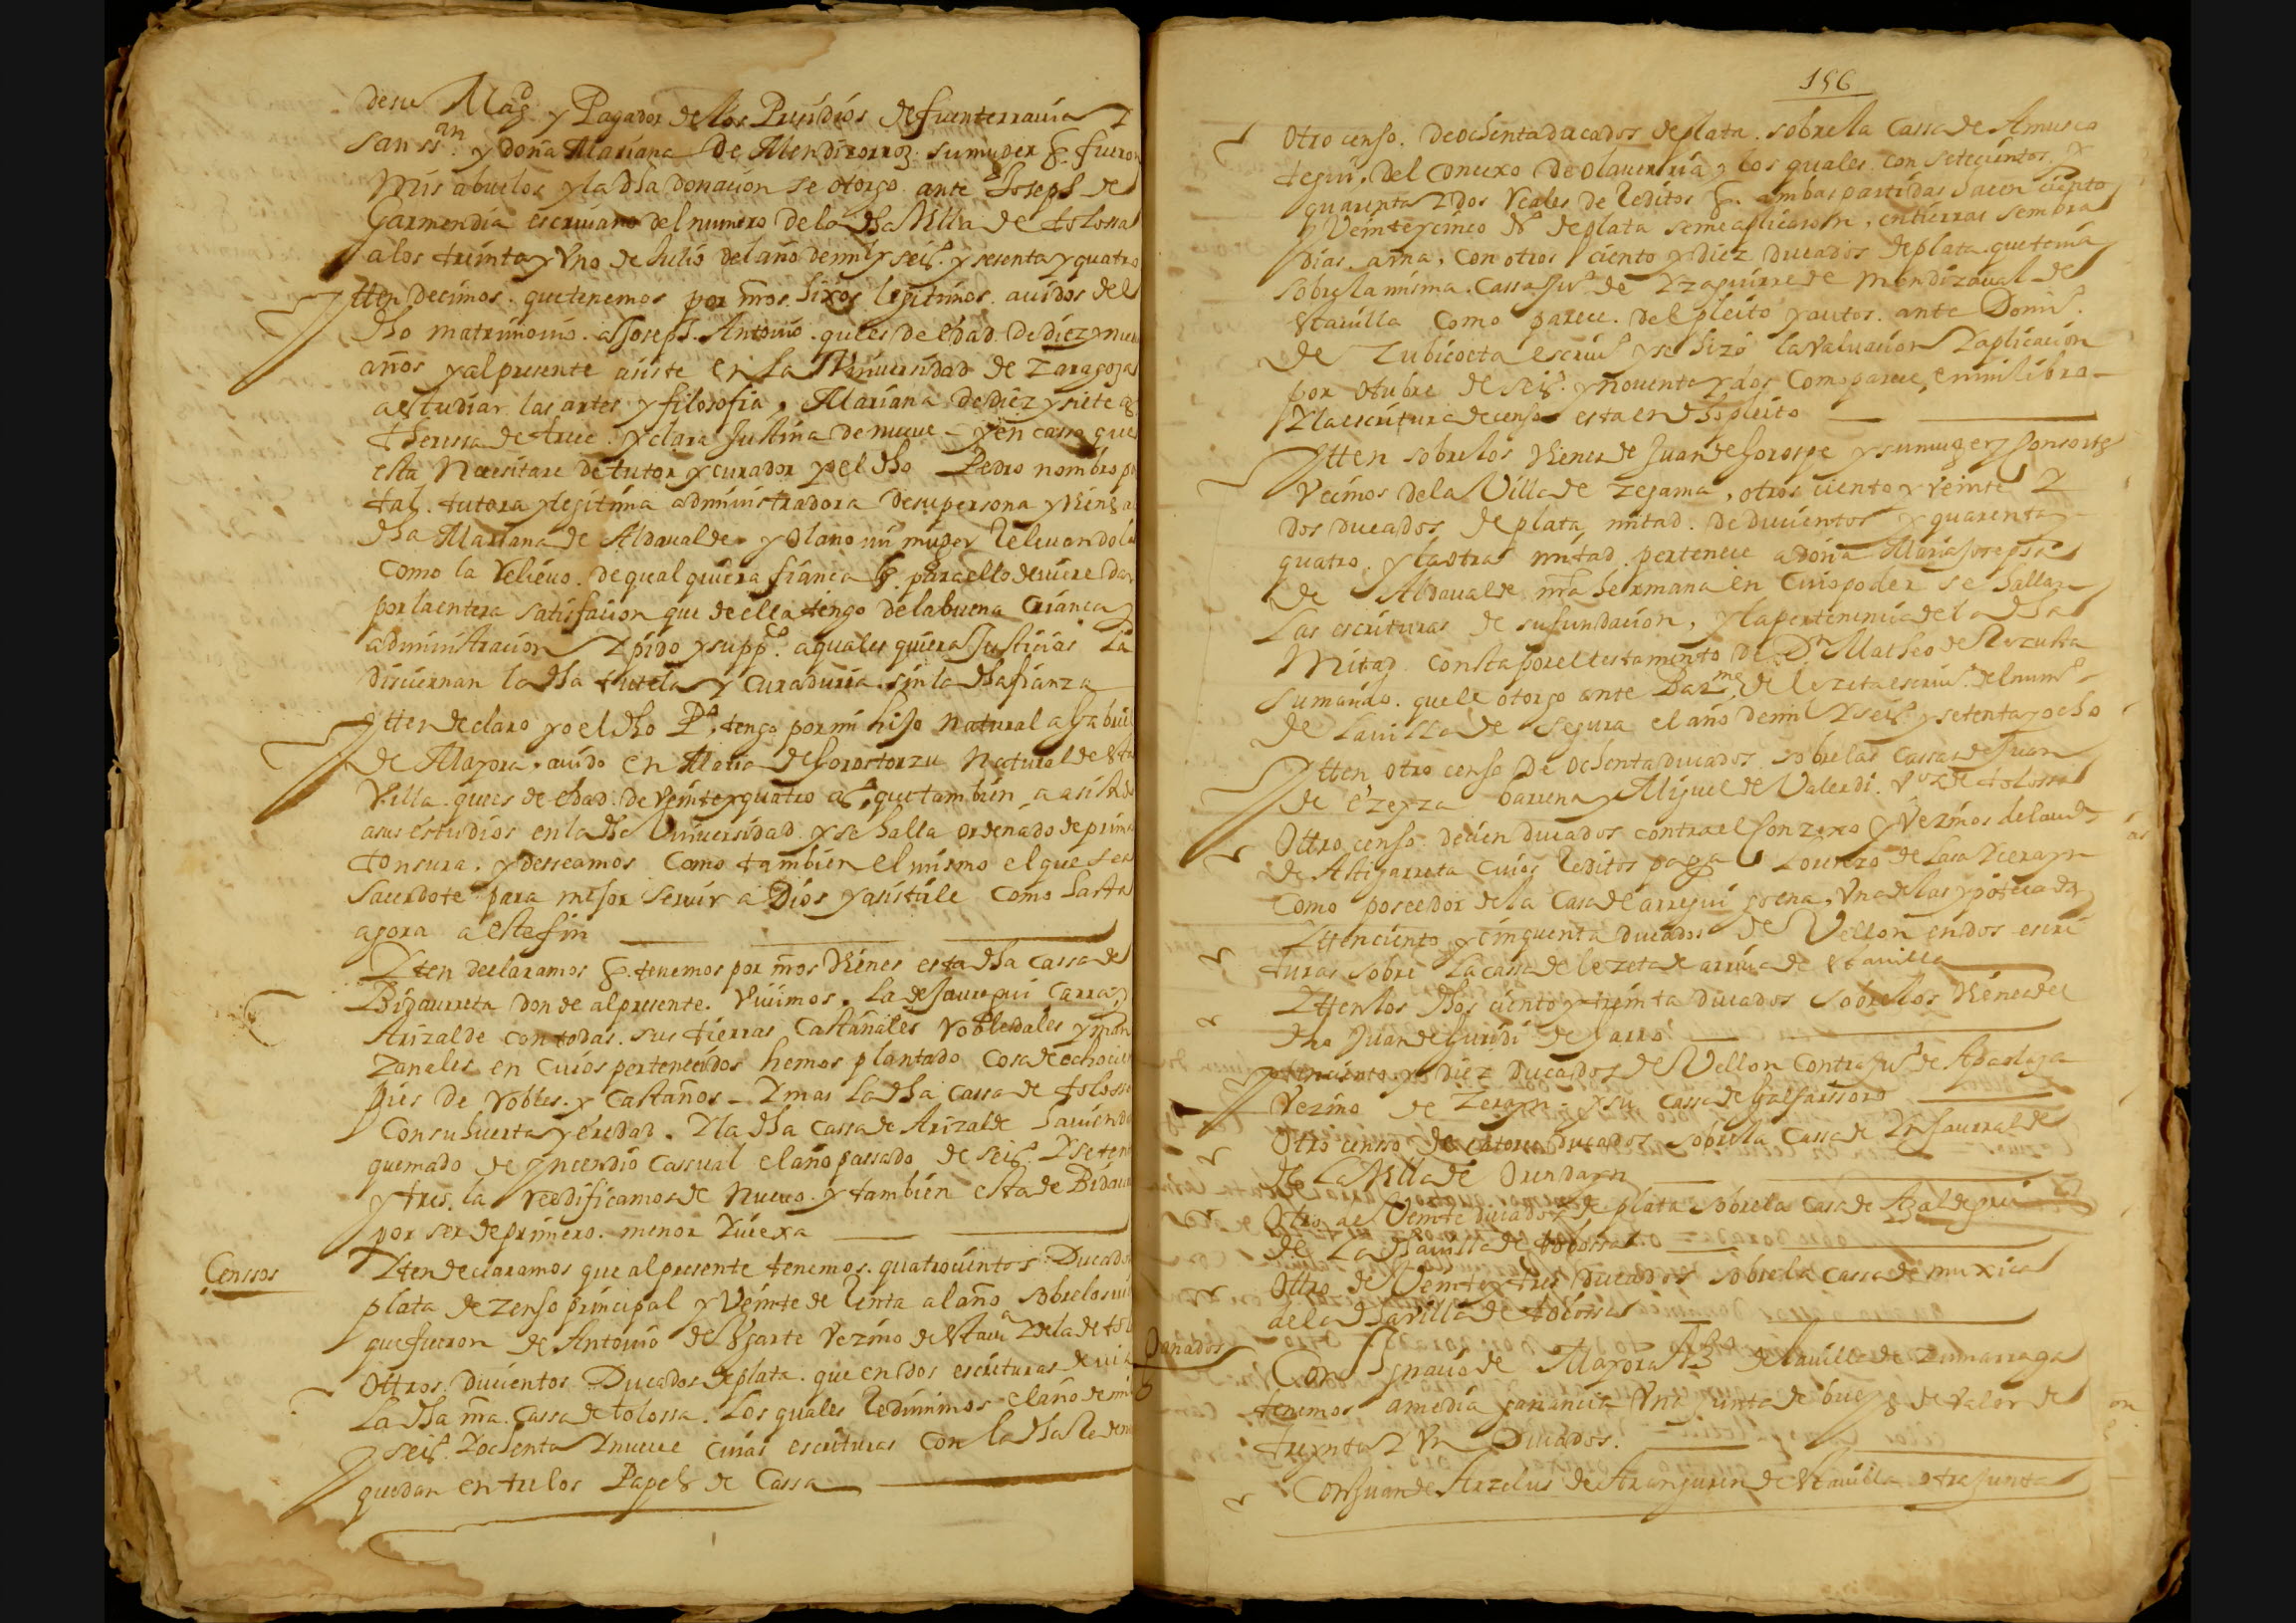 de su Magd y Pagador de los Presidios de fuenterravia Y
San ssan y doña Mariana de Mendizorroz su muger q fueron
mis abuelos y la dha donacion se otorgo ante Joseph de
Garmendia escriuano del numero de la dha Villa de tolossa
a los treinta y Vno de Julio del año de mil y seis y sesenta y quatro
Itten decimos que tenemos por nros hixos legitimos auidos del
dho matrimonio a Joseph Antonio que es de edad de diez y nueue
años y al presente asiste en la Vniuersidad de Zaragoza
a estudiar las artes y filosofia, Mariana de diez y siete as
theressa de trece y clara Justina de nueue y en casso que
esta Necesitare de tutor y curador yo el dho Pedro nombro por
tal tutora y legitima administradora de su persona y vienes a
dha Mariana de Aldaualde y Olano mi muger Releuandola
como la relieuo de qual quiera fianca q para ello deuiere dar
por la entera satisfacion que de ella tengo de la buena crianca
administracion Y pido y suppco a quales quiera Justicias La
disciernan la dha tutela y curaduria sin la dha fianza
Itten declaro yo el dho Po tengo por mi hijo natural a Gabriel
de Mayora auido en Maria de Gorostorzu Natural de esta
Villa que es de edad de Veinte y quatro as que tambien a asistido
a sus estudios en la dha Vniuersidad y se halla ordenado de prima
tonsura, y desseamos como tambien el mismo el que sea
Sacerdote para mejor seruir a Dios y asistirle como hasta
agora a este fin
Yten declaramos q tenemos por nros vienes esta dha cassa de
Bidaurreta donde al presente Viuimos, la de Jauregui carra,
Arizalde con todas sus tierras Castañales Robledales y man
zanales en cuios pertenecidos hemos plantado cosa de ochocientos
pies de robles y castaños Y mas la dha cassa de tolossa
Con su huerta y eredad. Y la dha cassa de Arizalde hauiendo
quemado de yncendio casual el año passado de seis Y seten
y tres, la reedificamos de nueuo y tambien esta de Bidaurreta
por ser de primero menor Y uiexa
Censsos
Yten declaramos que al presente tenemos quatrocientos Ducados
plata de zenso principal y Veinte de Renta al año sobre los vie
que fueron de Antonio de Vgarte Vezino de esta uilla Y de la de tol
Ottros ducientos Ducados de plata que en dos escrituras deuia
La dha nra cassa de tolossa. Los quales Redimimos el año de mil
y seis Y ochenta Y nueue cuias escrituras con la dha Redem
quedan entre los Papeles de Cassa
156
Otro censo de ochenta ducados de plata sobre la Cassa de Amusco
tegui, del concexo de Olauerria y los quales con setecientos Y
quarenta Y dos Reales de Reditos q ambas partidas hacen ciento
y Veinte y cinco ds de plata se me aplicaron, en tierras sembra
dias, a ma, con otros ciento y diez ducados de plata que tenia
sobre la misma Cassa Juo de Yzaguirre de Mendizaual de
esta uilla Como parece del pleito y autos ante Domo
de Zubicoeta escriuo y se hizo la valuacion Y aplicacion
por Otubre de seis y nouenta y dos Como parece, en mi libro
Y la escritura de censo esta en dho pleito
Itten sobre los vienes de Juan de Gorospe y su muger y consortes
Vecinos de la Villa de Zegama, otros ciento y veinte Y
dos ducados de plata mitad de ducientos y quarenta y
quatro y la otra mitad pertenece a doña Maria Josepha
de Aldaualde nra hermana en cuio poder se hallan
Las escrituras de su fundacion, y la pertenencia de la dha
Mitad consta por el testamento de Dn Matheo de
su marido que le otorgo ante Barme de Lezeta escriuo del numo
de La uilla de Segura el año de mil Y seis y setenta y ocho
Itten otro censo de ochenta ducados sobre las cassas de Juan
de Ezeyza barrena y Miguel de Valerdi Vos de tolossa
Ottro censo de cien ducados contra el Conzexo y Vezinos de la uni
de Astigarreta cuios Reditos paga Lorenzo de Lasa Yceta yn
como poseedor de la Casa de arregui goena, Vna de las ypotecadas
Itten ciento y cinquenta ducados de Vellon en dos escri
turas sobre la cassa de lezeta de arriua de esta uilla
Itten los dhos ciento y treinta ducados sobre los vienes del
dho Juan de Guridi de Garro
otros ciento y diez ducados de Vellon contra Juo de Abarlaga
Vezino de Zerayn y su cassa de Galfarssoro
Otro censso de catorce ducados sobre la Cassa de Ynsaurralde
de La Villa de Orendayn
Otro de Veinte ducados de plata sobre la Casa de Azaldegui
de La dha uilla de tolossa
Ottro de Veinte y tres ducados sobre la cassa de muxica
de la dha villa de tolossa
Ganados
Con Ygnacio de Mayora de la uilla de Zumarraga
tenemos a media ganancia Vna junta de bueyes de valor de
treynta Y Vn Ducados.
Con Juan de Arzelus de Aranguren de esta uilla otra junta